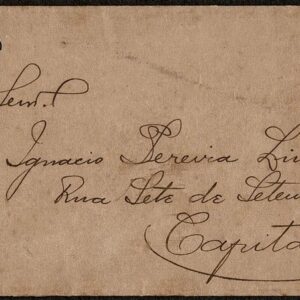 Ignacio Pereira Lim
Rua Sete de Setem
Capita